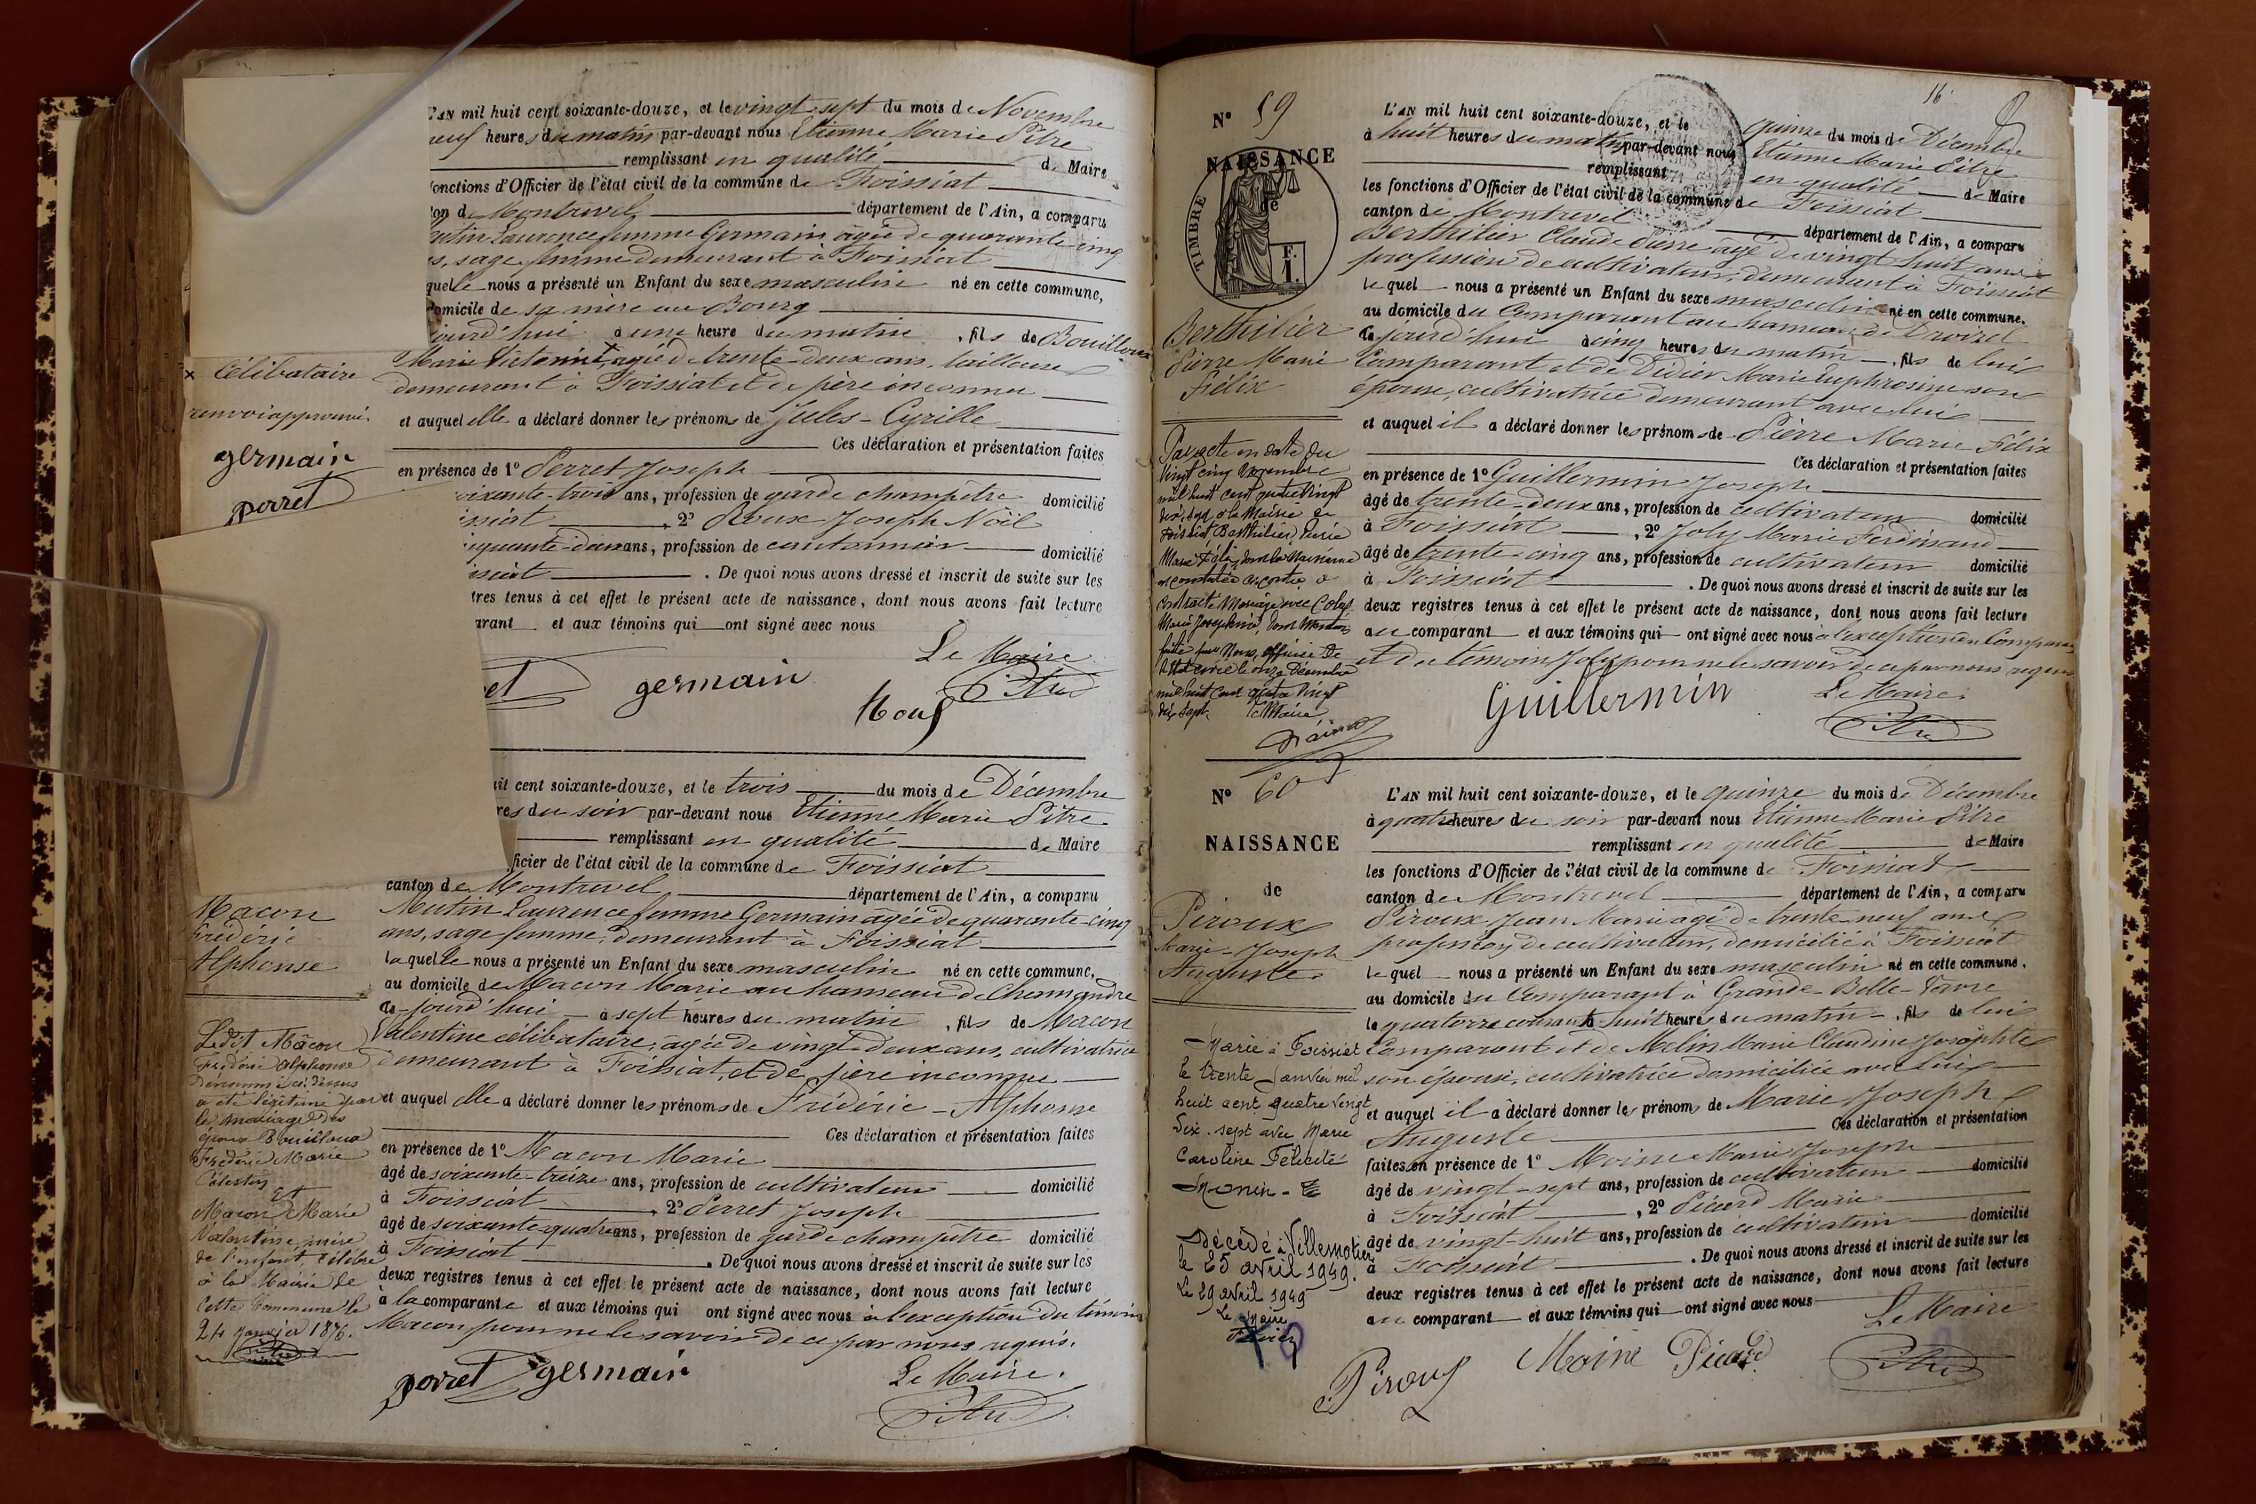 L'AN mil huit cent soixante-douze, et le vingt-sept du mois de Novembre
neuf heures du matin par-devant nous Etienne Marie Pitre
remplissant en qualité de Maire
fonctions d'Officier de l'état civil de la commune de Foissiat
ton de Montrevel département de l'Ain, a comparu
Mutin Laurence femme Germain âgée de quarante-cinq
s, sage femme demeurant à Foissiat
quelle nous a présenté un Enfant du sexe masculin né en cette commune,
domicile de sa mère au Bourg
jourd'hui à une heure du matin, fils de Bouilloux
× Célibataire
Marie Victorine, × agée de trente-deux ans, tailleuse
demeurant à Foissiat et de père inconnu
renvoi approuvé
et auquel elle a déclaré donner les prénoms de Jules-Cyrille
Ces déclaration et présentation faites
germain
en présence de 1° Perret Joseph
perret
soixante-trois ans, profession de garde champêtre domicilié
issiat, 2° Roux Joseph Noël
quante-deux ans, profession de cantonnier domicilié
issiat. De quoi nous avons dressé et inscrit de suite sur les
tres tenus à cet effet le présent acte de naissance, dont nous avons fait lecture
arant et aux témoins qui ont signé avec nous
Le Maire
et germain Roux Pitre
uit cent soixante-douze, et le trois du mois de Décembre
res du soir par-devant nous Etienne Marie Pitre
remplissant en qualité de Maire
ficier de l'état civil de la commune de Foissiat
canton de Montrevel département de l'Ain, a comparu
Macon
Frédéric
Alphonse
Mutin Laurence femme Germain âgée de quarante-cinq
ans, sage femme, demeurant à Foissiat
laquelle nous a présenté un Enfant du sexe masculin né en cette commune,
au domicile de Macon Marie au hameau de Chemandre
ce jourd'hui à sept heures du matin, fils de Macon
Valentine célibataire, agée de vingt-deux ans, cultivatrice
demeurant à Foissiat, et de père inconnu
et auquel elle a déclaré donner les prénoms de Frédéric-Alphonse
Ces déclaration et présentation faites
en présence de 1° Macon Marie
âgé de soixante-treize ans, profession de cultivateur domicilié
à Foissiat, 2° Perret Joseph
âgé de soixante-quatre ans, profession de garde champêtre domicilié
à Foissiat. De quoi nous avons dressé et inscrit de suite sur les
deux registres tenus à cet effet le présent acte de naissance, dont nous avons fait lecture
à la comparante et aux témoins qui ont signé avec nous à l'exception du témoin
Macon pour ne le savoir de ce par nous requis.
perret germain
Le Maire.
Pitre
Ledit Macon
Frédéric Alphonse
dénommé ci-dessus
a été légitimé par
le mariage des
époux Bouilloux
Frédéric Marie
Célestin
et
Macon Marie
Valentine mère
de l'enfant, célébré
à la Mairie de
cette Commune le
24 janvier 1876.
Pitre
16
N° 59
NAISSANCE
de
TIMBRE
1 F.
Berthilier
Pierre Marie
Félix
L'AN mil huit cent soixante-douze, et le quinze du mois de Décembre
à huit heures du matin par-devant nous Etienne Marie Pitre
remplissant en qualité de Maire
les fonctions d'Officier de l'état civil de la commune de Foissiat
canton de Montrevel département de l'Ain, a comparu
Berthilier Claude Pierre âgé de vingt-huit ans
profession de cultivateur, demeurant à Foissiat
lequel nous a présenté un Enfant du sexe masculin né en cette commune.
au domicile du Comparant au hameau de Droizel
ce jourd'hui à cinq heures du matin, fils de lui
Comparant et de Didier Marie Euphrosine son
épouse, cultivatrice demeurant avec lui
et auquel il a déclaré donner les prénoms de Pierre Marie Félix
Ces déclaration et présentation faites
en présence de 1° Guillermin Joseph
âgé de trente-deux ans, profession de cultivateur domicilié
à Foissiat, 2° Joly Marie Ferdinand
âgé de trente-cinq ans, profession de cultivateur domicilié
à Foissiat. De quoi nous avons dressé et inscrit de suite sur les
deux registres tenus à cet effet le présent acte de naissance, dont nous avons fait lecture
au comparant et aux témoins qui ont signé avec nous à l'exception du Comparant
et du témoin Joly pour ne le savoir de ce par nous requis
Guillermin
Le Maire.
Pitre
Par acte en date du
vingt cinq Novembre
mil huit cent quatre vingt
dix sept à la Mairie de
Foissiat, Berthilier, Pierre
Marie Félix, dont la Naissance
est constatée ci-contre a
contracté Mariage avec
Marie Joséphine, dont Mention
faite par Nous, officier de
l'état civil le onze Décembre
mil huit cent quatre vingt
dix sept.
Le Maire
N° 60
NAISSANCE
de
Piroux
Marie-Joseph
Auguste
L'AN mil huit cent soixante-douze, et le quinze du mois de Décembre
à quatre heures du soir par-devant nous Etienne Marie Pitre
remplissant en qualité de Maire
les fonctions d'Officier de l'état civil de la commune de Foissiat
canton de Montrevel département de l'Ain, a comparu
Piroux Jean Marie agé de trente-neuf ans
profession de cultivateur, domicilié à Foissiat
lequel nous a présenté un Enfant du sexe masculin né en cette commune.
au domicile du Comparant à Grande Belle-Vavre
le quatorze courant à huit heures du matin, fils de lui
Comparant et de Melin Marie Claudine Josephte
son épouse, cultivatrice domiciliée avec lui
et auquel il a déclaré donner les prénoms de Marie Joseph
Auguste Ces déclaration et présentation
faites en présence de 1° Moine Marie Joseph
âgé de vingt-sept ans, profession de cultivateur domicilié
à Foissiat, 2° Picard Marie
âgé de vingt-huit ans, profession de cultivateur domicilié
à Foissiat. De quoi nous avons dressé et inscrit de suite sur les
deux registres tenus à cet effet le présent acte de naissance, dont nous avons fait lecture
au comparant et aux témoins qui ont signé avec nous
Le Maire
Piroux Moine Picard Pitre
Marié à Foissiat
le trente Janvier mil
huit cent quatre vingt
dix-sept avec Marie
Caroline Félicité
Monin
Décédé à Villemotier
le 25 avril 1949.
Le 29 avril 1949
Le Maire